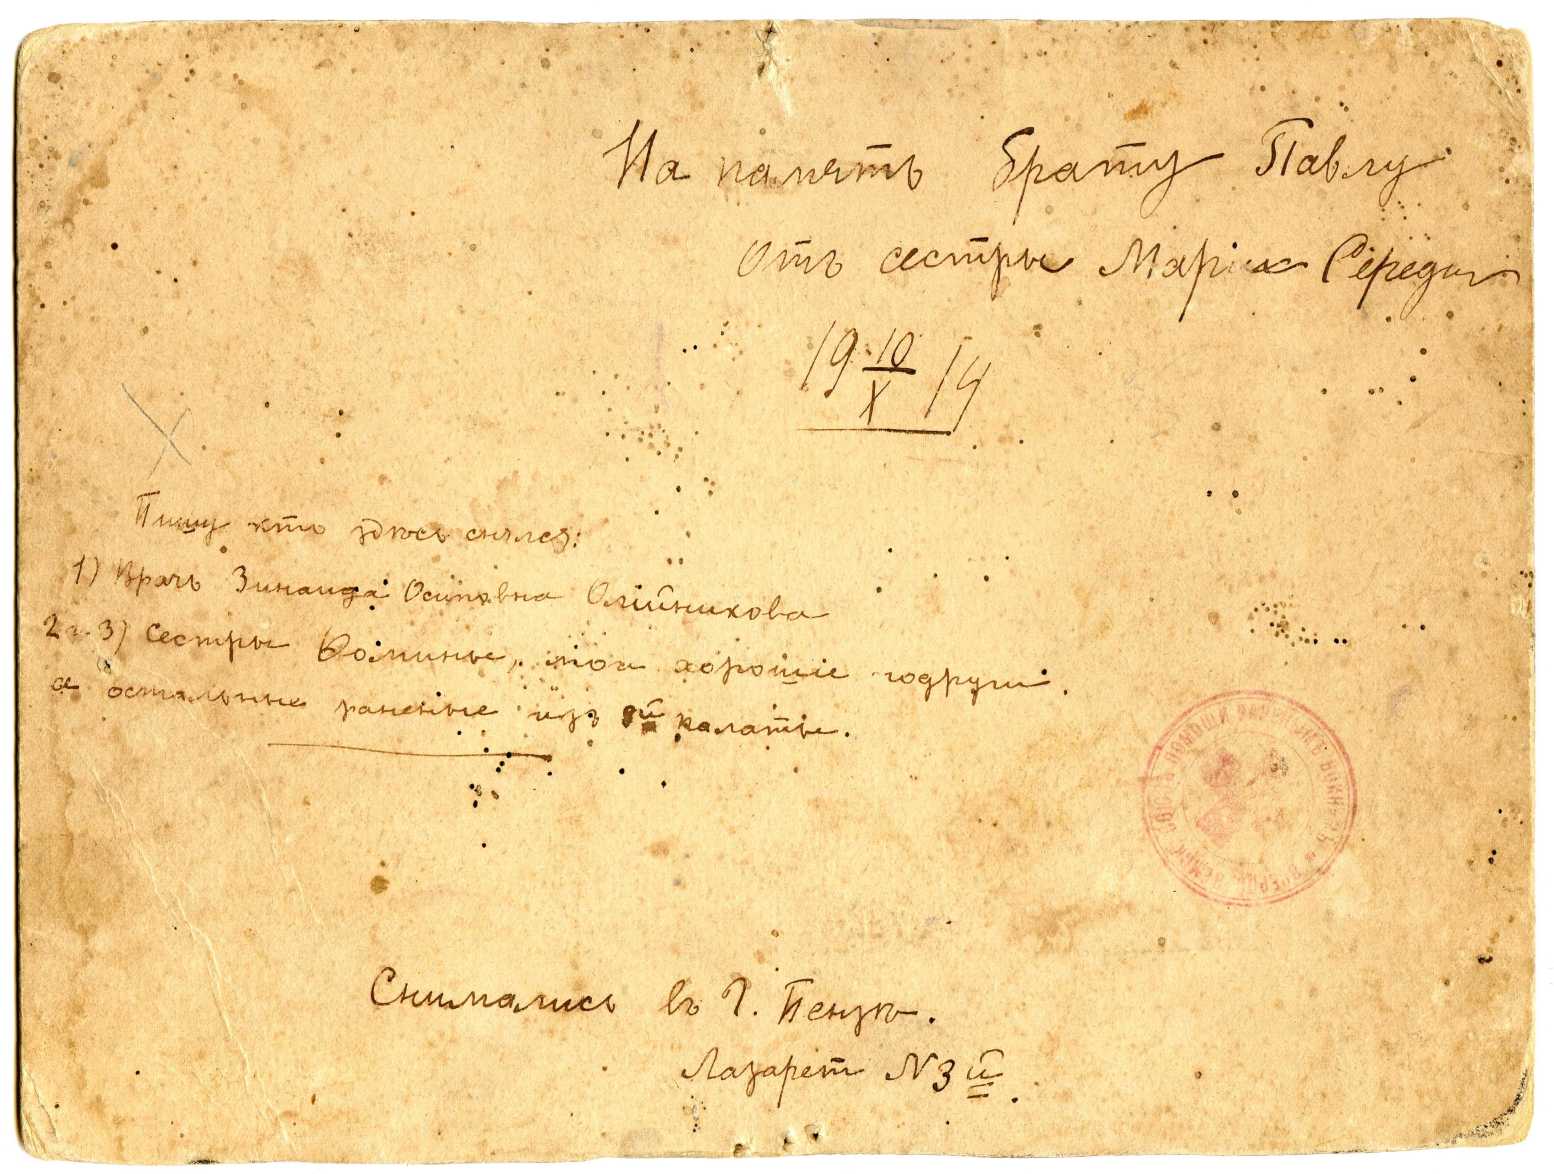 На память брату Павлу
Отъ сестры Маріи Середы
19 10/X 14
Пишу кто здѣсь снялся:
1) Врачъ Зинаида Осиповна Олійникова
2 и 3) Сестры мои хорошіе подруги.
а остальные раненые изъ палаты.
Снимались въ г. Пензѣ.
Лазарет N 3й.
помощи воинамъ